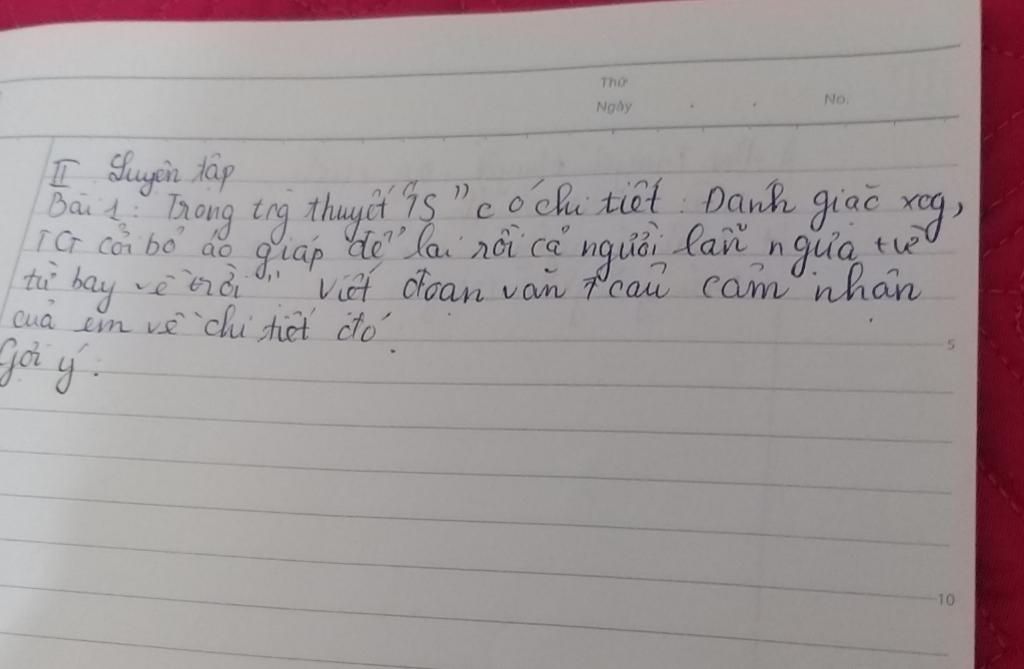 Thứ
Ngày . . No.
II Luyện tập
Bài 1: Trong trg thuyết "TS" có chi tiết: Đánh giặc xog,
TG cởi bỏ áo giáp để lại rồi cả người lẫn ngựa từ
từ bay về trời" Viết đoạn văn 7 câu cảm nhận
của em về chi tiết đó.
Gợi ý:
5
10